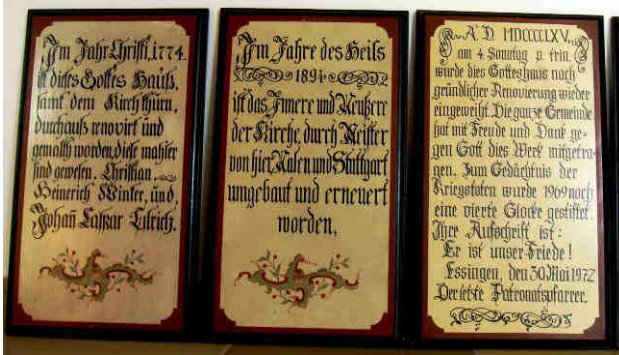 Im Jahr Christi, 1774.
ist dieses Gottes Hauß,
samt dem Kirchthurn,
durchauß renovirt und
gemahlt worden, diese mahler
sind gewesen. Christian
Heinerich Winter, und,
Johañ Caspar Ellrich.
Im Jahre des Heils
1894
ist das Innere und Aeußere
der Kirche durch Meister
von hier, Aalen und Stuttgart
umgebaut und erneuert
worden.
A. D. MDCCCCLXV
am 4. Sonntag p. trin.
wurde dies Gotteshaus nach
gründlicher Renovierung wieder
eingeweiht. Die ganze Gemeinde
hat mit Freude und Dank ge-
gen Gott dies Werk mitgetra-
gen. Zum Gedächtnis der
Kriegstoten wurde 1969 noch
eine vierte Glocke gestiftet.
Ihre Aufschrift ist:
Er ist unser Friede!
Essingen, den 30. Mai 1972
Der letzte Patronatspfarrer.